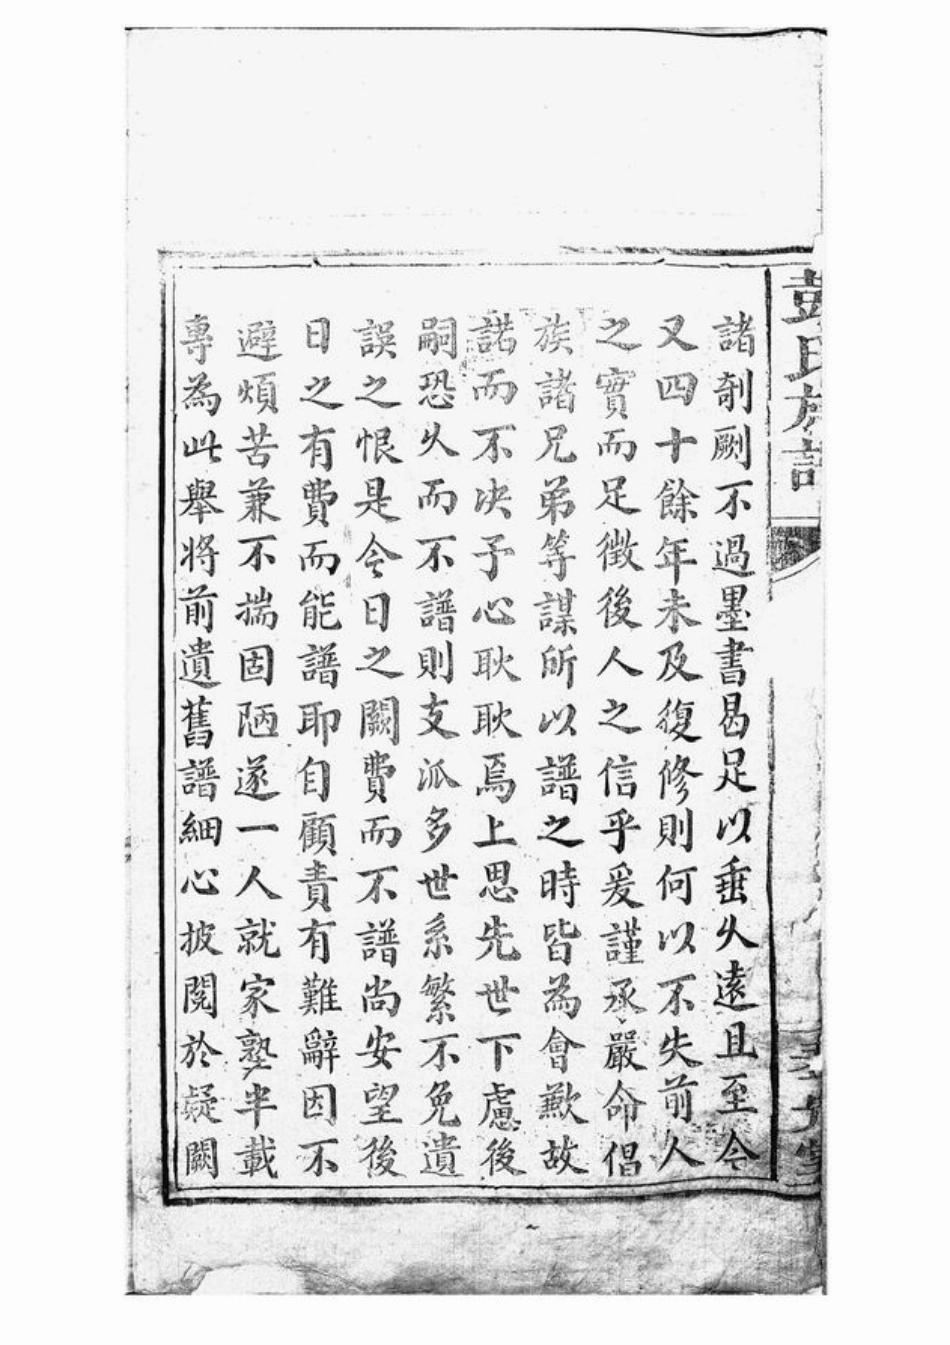 彭氏族譜
諸剞劂不過墨書曷足以垂久遠且至今
又四十餘年未及復修則何以不失前人
之實而足徵後人之信乎爰謹承嚴命倡
族諸兄弟等謀所以譜之時皆為會歉故
諾而不决予心耿耿焉上思先世下慮後
嗣恐久而不譜則支派多世系繁不免遺
誤之恨是今日之闕費而不譜尚安望後
日之有費而能譜耶自顧責有難辭因不
避煩苦兼不揣固陋遂一人就家塾半載
專為此舉將前遺舊譜細心披閱於疑闕